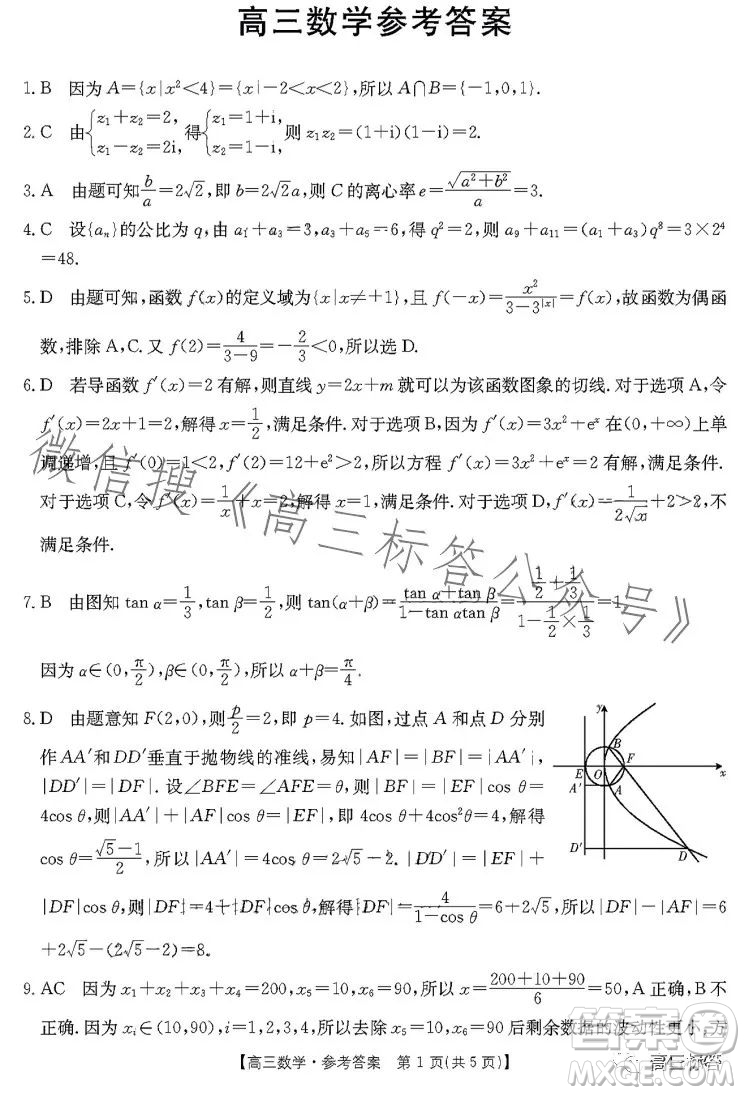 高三数学参考答案
1. B 因为 A={x|x²<4}={x|-2<x<2},所以 A∩B={-1,0,1}.
2. C 由{z₁+z₂=2, z₁-z₂=2i, 得{z₁=1+i, z₂=1-i, 则 z₁z₂=(1+i)(1-i)=2.
3. A 由题可知 b/a=2√2,即 b=2√2a,则 C 的离心率 e=√(a²+b²)/a=3.
4. C 设{aₙ}的公比为 q,由 a₁+a₃=3,a₃+a₅=6,得 q²=2,则 a₉+a₁₁=(a₁+a₃)q⁸=3×2⁴
=48.
5. D 由题可知,函数 f(x)的定义域为{x|x≠±1},且 f(-x)=x²/(3-3^|x|)=f(x),故函数为偶函
数,排除 A,C.又 f(2)=4/(3-9)=-2/3<0,所以选 D.
6. D 若导函数 f′(x)=2 有解,则直线 y=2x+m 就可以为该函数图象的切线.对于选项 A,令
f′(x)=2x+1=2,解得 x=1/2,满足条件.对于选项 B,因为 f′(x)=3x²+eˣ 在(0,+∞)上单
调递增,且 f′(0)=1<2,f′(2)=12+e²>2,所以方程 f′(x)=3x²+eˣ=2 有解,满足条件.
对于选项 C,令 f′(x)=1/x+x=2,解得 x=1,满足条件.对于选项 D,f′(x)=1/(2√x)+2>2,不
满足条件.
7. B 由图知 tan α=1/3,tan β=1/2,则 tan(α+β)=(tan α+tan β)/(1-tan αtan β)=(1/2+1/3)/(1-1/2×1/3)=1.
因为 α∈(0,π/2),β∈(0,π/2),所以 α+β=π/4.
8. D 由题意知 F(2,0),则 p/2=2,即 p=4.如图,过点 A 和点 D 分别
作 AA′和 DD′垂直于抛物线的准线,易知|AF|=|BF|=|AA′|,
|DD′|=|DF|.设∠BFE=∠AFE=θ,则|BF|=|EF|cos θ=
4cos θ,则|AA′|+|AF|cos θ=|EF|,即 4cos θ+4cos²θ=4,解得
cos θ=(√5-1)/2,所以|AA′|=4cos θ=2√5-2.|DD′|=|EF|+
|DF|cos θ,则|DF|=4+|DF|cos θ,解得|DF|=4/(1-cos θ)=6+2√5,所以|DF|-|AF|=6
+2√5-(2√5-2)=8.
y
B
E
O
F
x
A′
A
D′
D
9. AC 因为 x₁+x₂+x₃+x₄=200,x₅=10,x₆=90,所以 x̄=(200+10+90)/6=50,A 正确,B 不
正确.因为 xᵢ∈(10,90),i=1,2,3,4,所以剔除 x₅=10,x₆=90 后剩余数据的波动性更小,方
【高三数学·参考答案 第 1 页(共 5 页)】
微信搜《高三标答公众号》
高三标答
答案圈
MXQE.COM